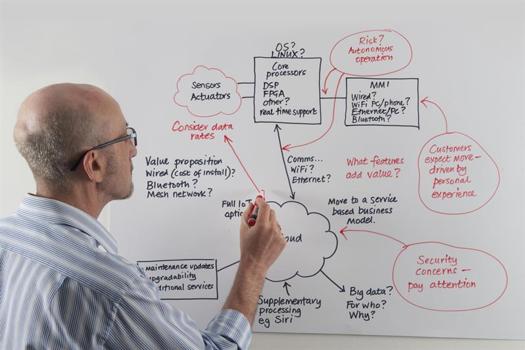 OS?
LINUX?
Core
processors
DSP
FPGA
other?
real time support
Risk?
Autonomous
operation
Sensors
Actuators
MMI
Wired?
WiFi Pc/phone?
Ethernet/Pc?
Bluetooth?
Consider data
rates
Customers
expect more-
driven by
personal
experience
Value proposition
Wired (cost of install)?
Bluetooth?
Mesh network?
Comms...
WiFi?
Ethernet?
What features
add value?
Full
Move to a service
based business
model.
Security
concerns -
pay attention
maintenance updates
services
Supplementary
processing
eg Siri
Big data?
For who?
Why?